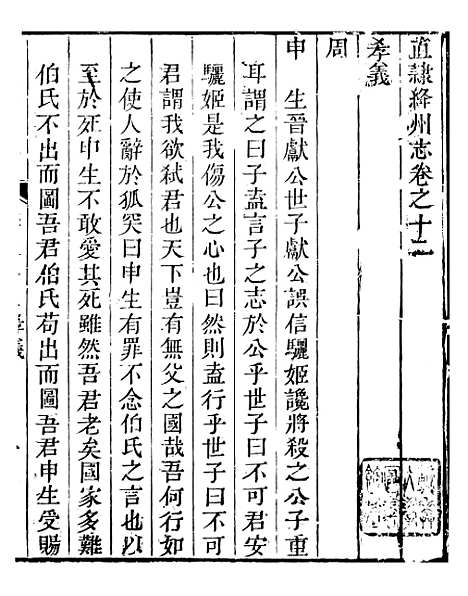 直隸絳州志卷之十二
孝義
周
申　生晉獻公世子獻公誤信驪姬讒將殺之公子重
耳謂之曰子盍言子之志於公乎世子曰不可君安
驪姬是我傷公之心也曰然則盍行乎世子曰不可
君謂我欲弒君也天下豈有無父之國哉吾何行如
之使人辭於狐突曰申生有罪不念伯氏之言也以
至於死申生不敢愛其死雖然吾君老矣國家多難
伯氏不出而圖吾君伯氏苟出而圖吾君申生受賜